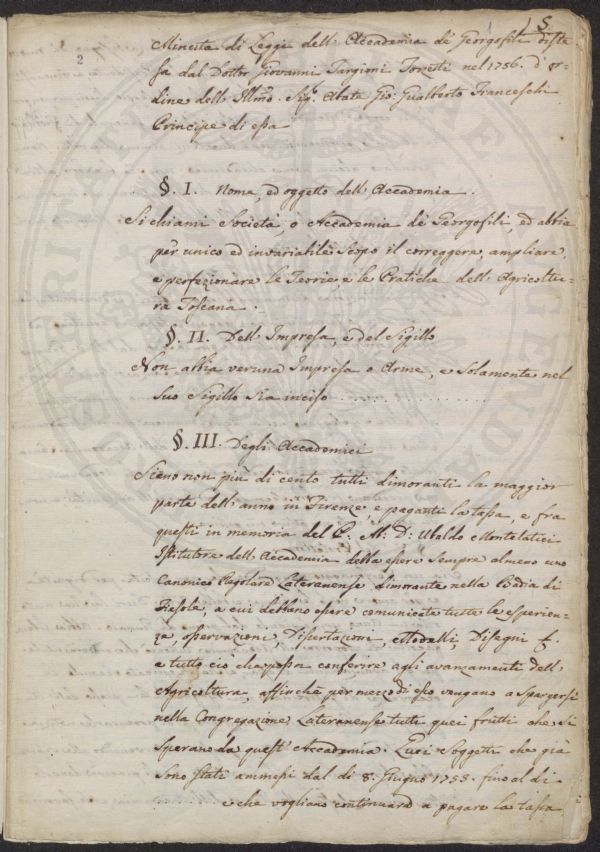 5
2
Minuta di Leggi dell' Accademia de' Georgofili diste-
sa dal Dottor Giovanni Targioni Tozzetti nel 1756. d' or-
dine dell' Illmo. Sig.r Abate Gio: Gualberto Franceschi
Principe di essa
§. I. Nome, ed oggetto dell' Accademia.
Si chiami Società, o Accademia de' Georgofili, ed abbia
per unico ed invariabile Scopo il correggere, ampliare,
e perfezionare le Teorie e le Pratiche dell' Agricoltu-
ra Toscana.
§. II. Dell' Impresa, e del Sigillo
Non abbia veruna Impresa o Arme, e Solamente nel
Suo Sigillo Sia inciso . . . . . . . . . . . . .
§. III. Degli Accademici
Sieno non più di cento tutti dimoranti la maggior
parte dell' anno in Firenze, e paganti la tassa, e fra
questi in memoria del P. Ab: D: Ubaldo Montelatici
Istitutore dell' Accademia debba essere Sempre almeno uno
Canonico Regolare Lateranense dimorante nella Badia di
Fiesole, a cui debbano essere comunicate tutte le esperien-
za, osservazioni, Dissertazioni, Modelli, Disegni &.
e tutto ciò che possa conferire agli avanzamenti dell'
Agricoltura, affinché per mezzo di esso vengano a Spargersi
nella Congregazione Lateranense tutti quei frutti che Si
Sperano da quest' Accademia. Quei Soggetti che già
Sono Stati ammessi dal dì 8. Giugno 1753. fino al dì
. . . . . . . . e che vogliano continuare a pagare la tassa